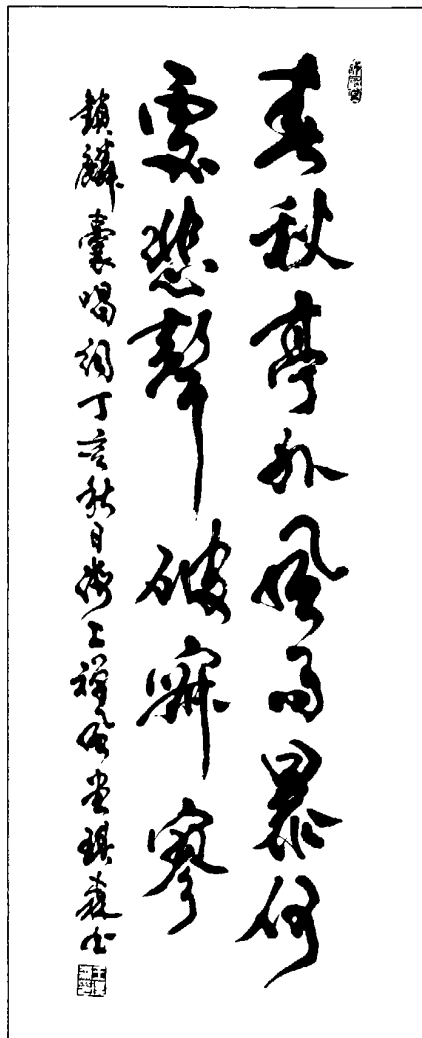 春秋亭外風雨暴何
處悲聲破寂寥
鎖麟囊唱詞丁亥秋日海上禪風堂琪森書